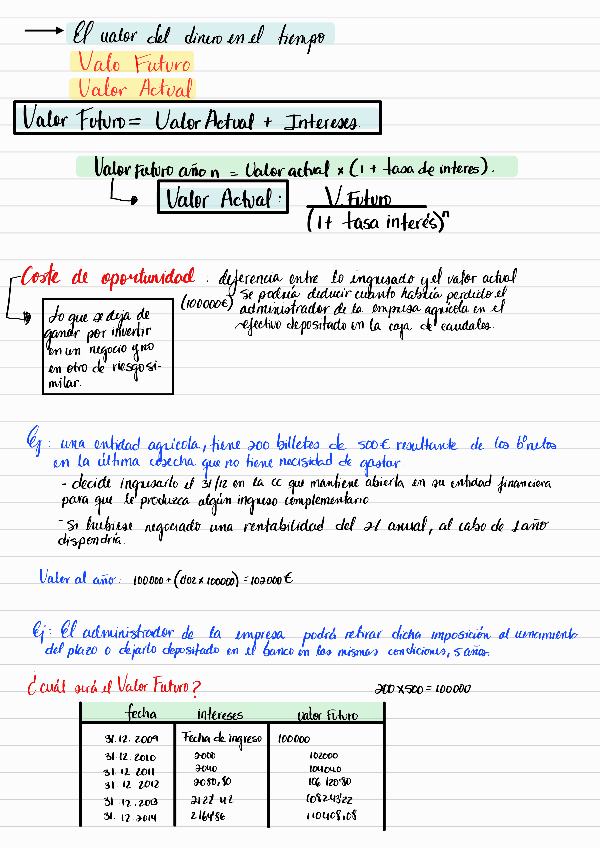 El valor del dinero en el tiempo
Valo Futuro
Valor Actual
Valor Futuro = Valor Actual + Intereses.
Valor Futuro año n = Valor actual x (1 + tasa de interes).
Valor Actual: V. Futuro
(1+ tasa interés)^n
Coste de oportunidad. deferencia entre lo ingresado y el valor actual
(100000€) se podría deducir cuanto habría perdido el
administrador de la empresa agrícola en el
efectivo depositado en la caja de caudales.
Lo que se deja de
ganar por invertir
en un negocio y no
en otro de riesgo si-
milar.
Ej: una entidad agrícola, tiene 200 billetes de 500€ resultante de los bºnetos
en la última cosecha que no tiene necisidad de gastar
- decide ingresarlo el 31/12 en la cc que mantiene abierta en su entidad financiera
para que le produzca algún ingreso complementario
- Si hubiese negociado una rentabilidad del 2% anual, al cabo de 1 año
dispondría.
Valor al año: 100000 + (0'02 x 100000) = 102000€
Ej: El administrador de la empresa podrá retirar dicha imposición al vencimiento
del plazo o dejarlo depositado en el banco en las mismas condiciones, 5 años.
¿cuál será el Valor Futuro? 200 x 500 = 100000
fecha intereses valor futuro
31.12.2009 Fecha de ingreso 100000
31.12.2010 2000 102000
31.12.2011 2040 104040
31.12.2012 2080,80 106120'80
31.12.2013 2122'42 108243'22
31.12.2014 2164'86 110408,08